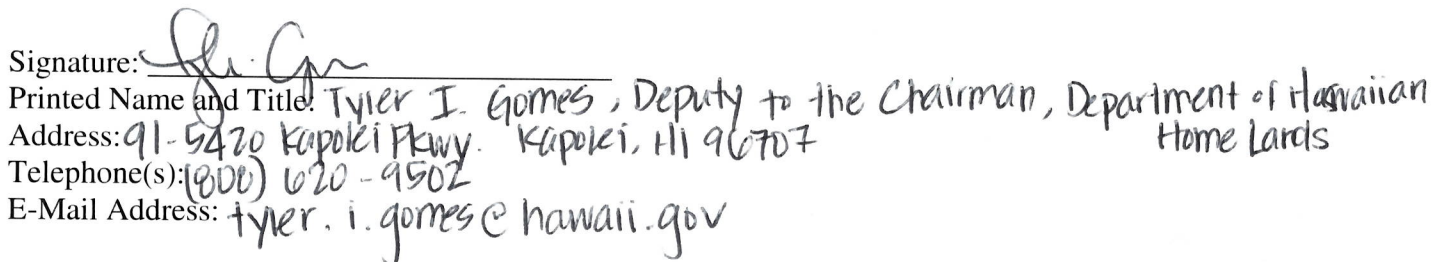 Signature:
Printed Name and Title: Tyler I. Gomes, Deputy to the Chairman, Department of Hawaiian
Home Lands
Address: 91-5420 Kapolei Pkwy. Kapolei, HI 96707
Telephone(s): (808) 620-9502
E-Mail Address: tyler.i.gomes@hawaii.gov